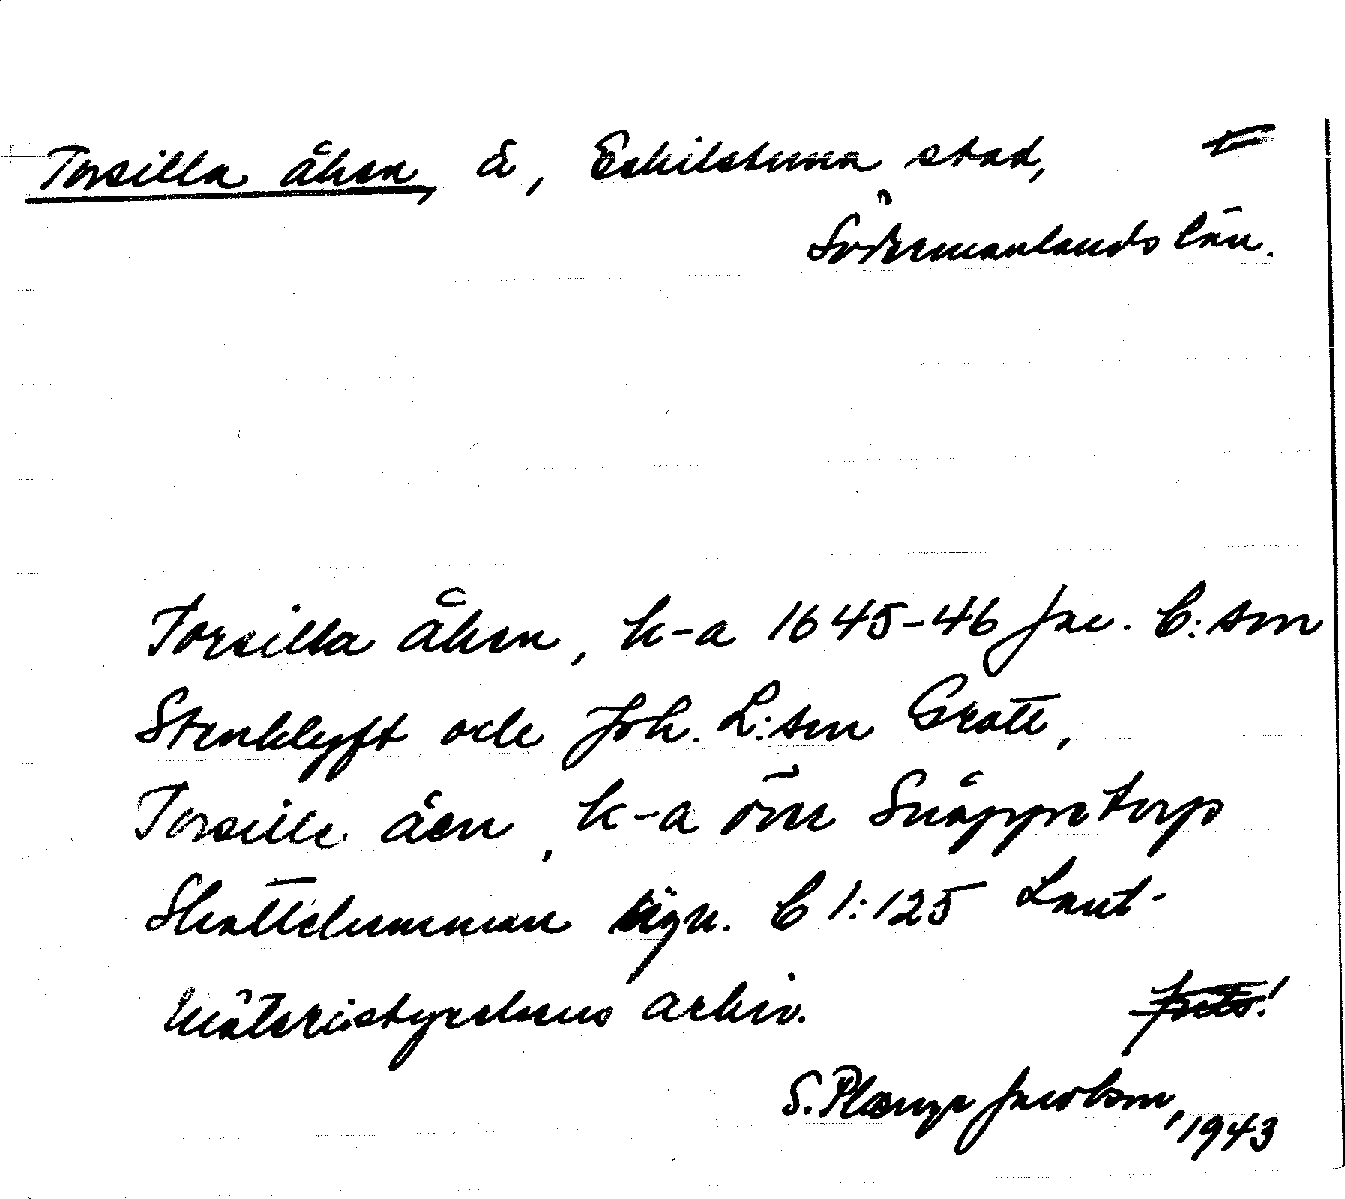 Torsilla åhen, å, Eskilstuna stad,
Södermanlands län.
Torsilla åhen, k-a 1645-46 Jac. C:son
Stenklyft och Joh. L:son Grott,
Torsille åen, k-a över Snåppetorp
Skattehemman sign. C 1:125 Lant-
mäteristyrelsens arkiv.
S. Plænge Jacobson,
1943